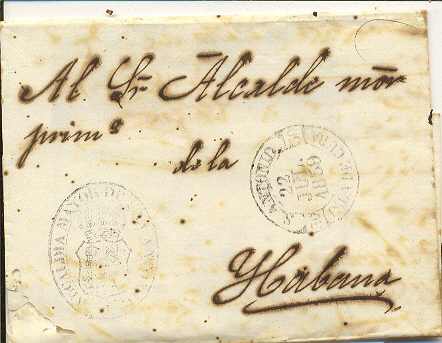 Al Sr Alcalde mor
primo
de la
Habana
ALCALDIA MAYOR DE
ANTONIO
22